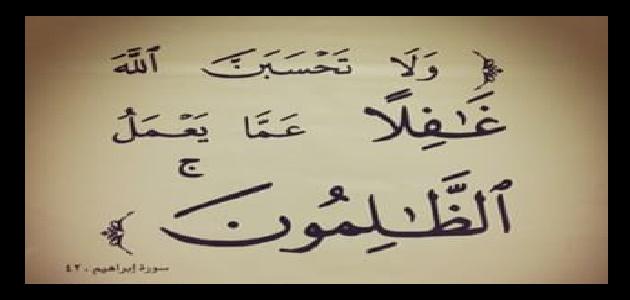 ﴿ وَلَا تَحْسَبَنَّ ٱللَّهَ
غَـٰفِلًا عَمَّا يَعْمَلُ
ٱلظَّـٰلِمُونَ ۚ ﴾
سورة إبراهيم ، ٤٢